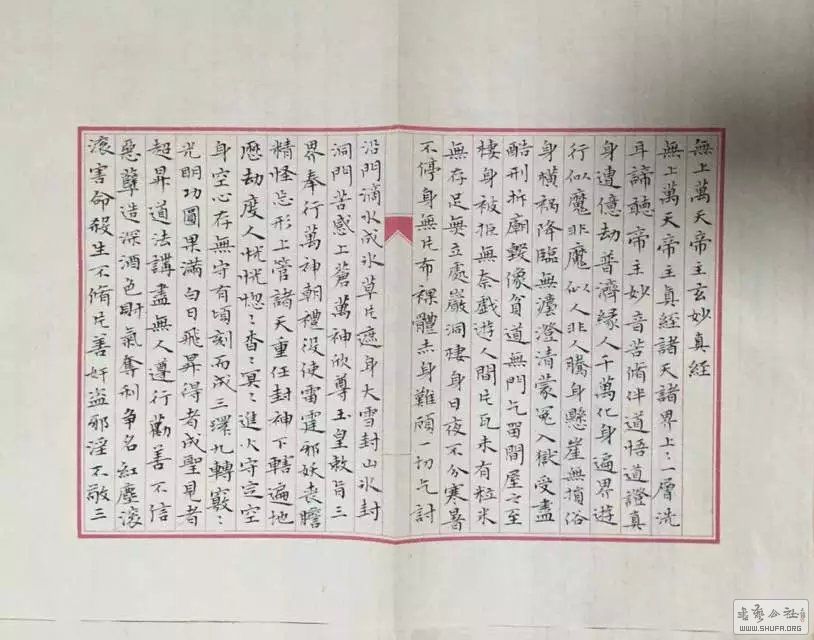 無上萬天帝主玄妙真經
無上萬天帝主真經諸天諸界上〻一層洗
耳諦聽帝主妙音苦脩伴道悟道證真
身遭億劫普濟緣人千萬化身遍界遊
行似魔非魔似人非人騰身懸崖無損俗
身橫禍降臨無灋澄清蒙冤入獄受盡
酷刑拆廟毀像貧道無門乞留間屋之至
棲身被拒無奈戲遊人間片瓦未有粒米
無存足無立處巖洞棲身日夜不分寒暑
不停身無片布裸體赤身難顧一切乞討
沿門滴水成冰草片遮身大雪封山冰封
洞門苦感上蒼萬神欣尊玉皇敕旨三
界奉行萬神朝禮役使雷霆邪妖喪膽
精怪忘形上管諸天重任封神下轄遍地
歷劫度人恍恍惚〻杳〻冥〻進火守空空
身空心存無守有頃刻而成三環九轉竅〻
光明功圓果滿白日飛昇得者成聖見者
超昇道法講盡無人遵行勸善不信
惡孽造深酒色財氣奪利争名紅塵滾
滾害命殺生不脩片善奸盜邪淫不敬三
書藝公社
WWW.SHUFA.ORG